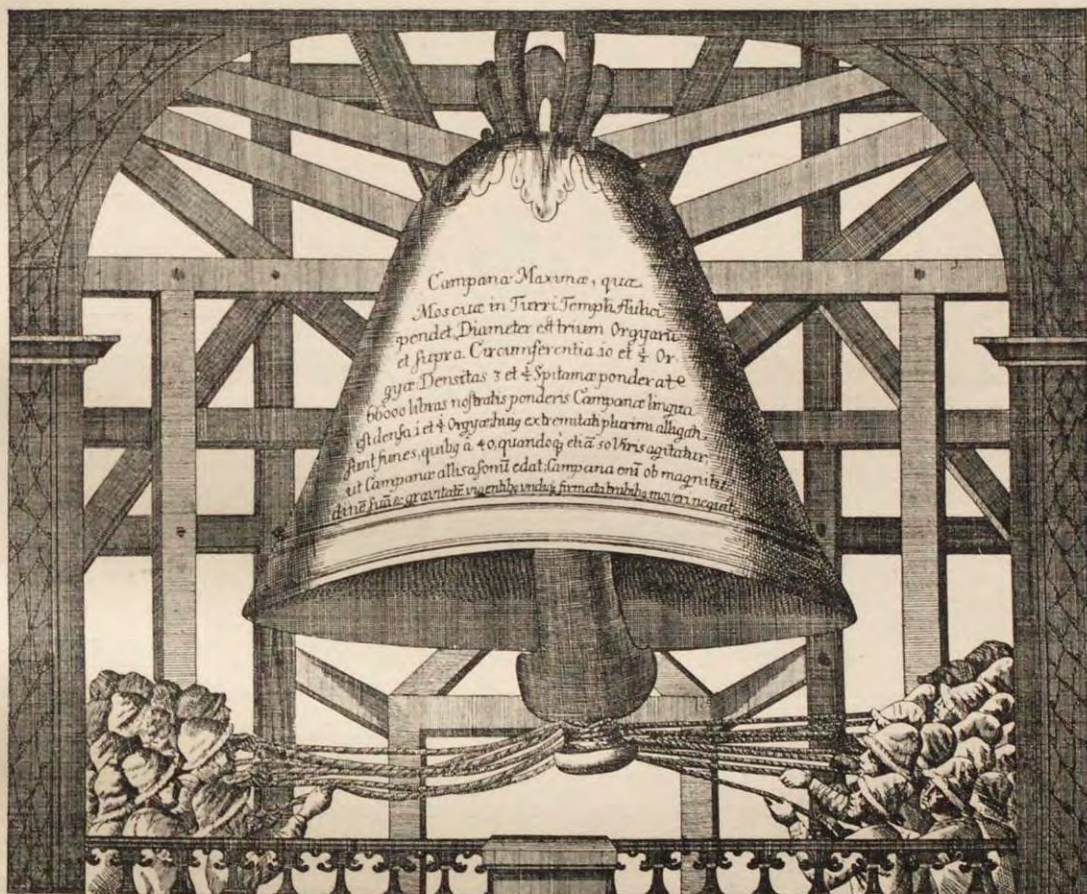 Campanæ Maximæ, quæ
Moscuæ in Turri Templi Aulici
pendet, Diameter est trium Orgyarū
et supra. Circumferentia 10 et ½ Or-
gyæ. Densitas 3 et ½ Spitamæ ponderat
66000 libras nostratis ponderis Campanæ lingua
est densa 1 et Orgyæ huiꝰ extremitati plurimi alligati
sunt funes, quibꝰ à 40, quandoqꝫ etiā 50 Viris agitatur,
ut Campanæ allisa sonū edat: Campana enī ob magnitu-
dinē suā & gravitatē undiqꝫ firmata trabibꝰ moveri nequeat